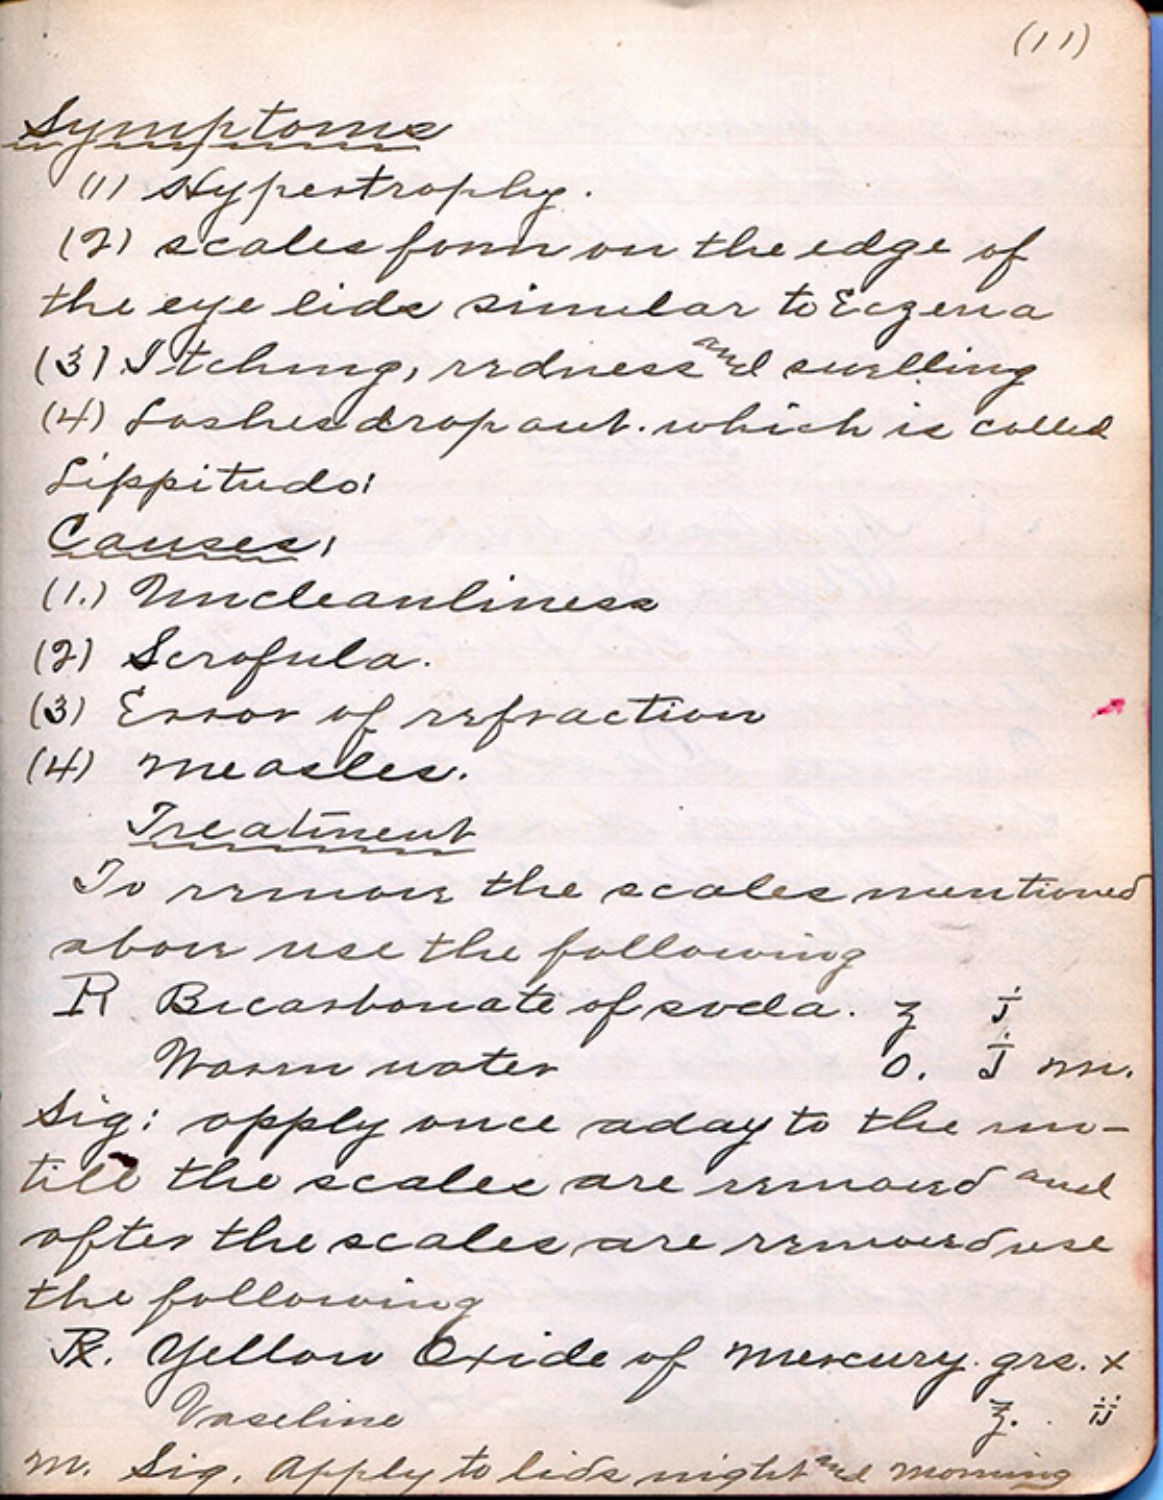 (11)
Symptoms
(1) Hypertrophy.
(2) scales form on the edge of
the eye lids simular to Eczema
(3) Itching, redness and swelling
(4) Lashes drop out. which is called
Lippitudo:
Causes:
(1.) Uncleanliness
(2) Scrofula.
(3) Error of refraction
(4) measles.
Treatment
To remove the scales mentioned
above use the following
R Bicarbonate of soda. ʒ j
Warm water O. j m.
Sig: apply once a day to the un-
till the scales are removed and
after the scales are removed use
the following
Rx. Yellow Oxide of mercury. grs. x
Vaseline ʒ. ij
m. Sig. Apply to lids night and morning